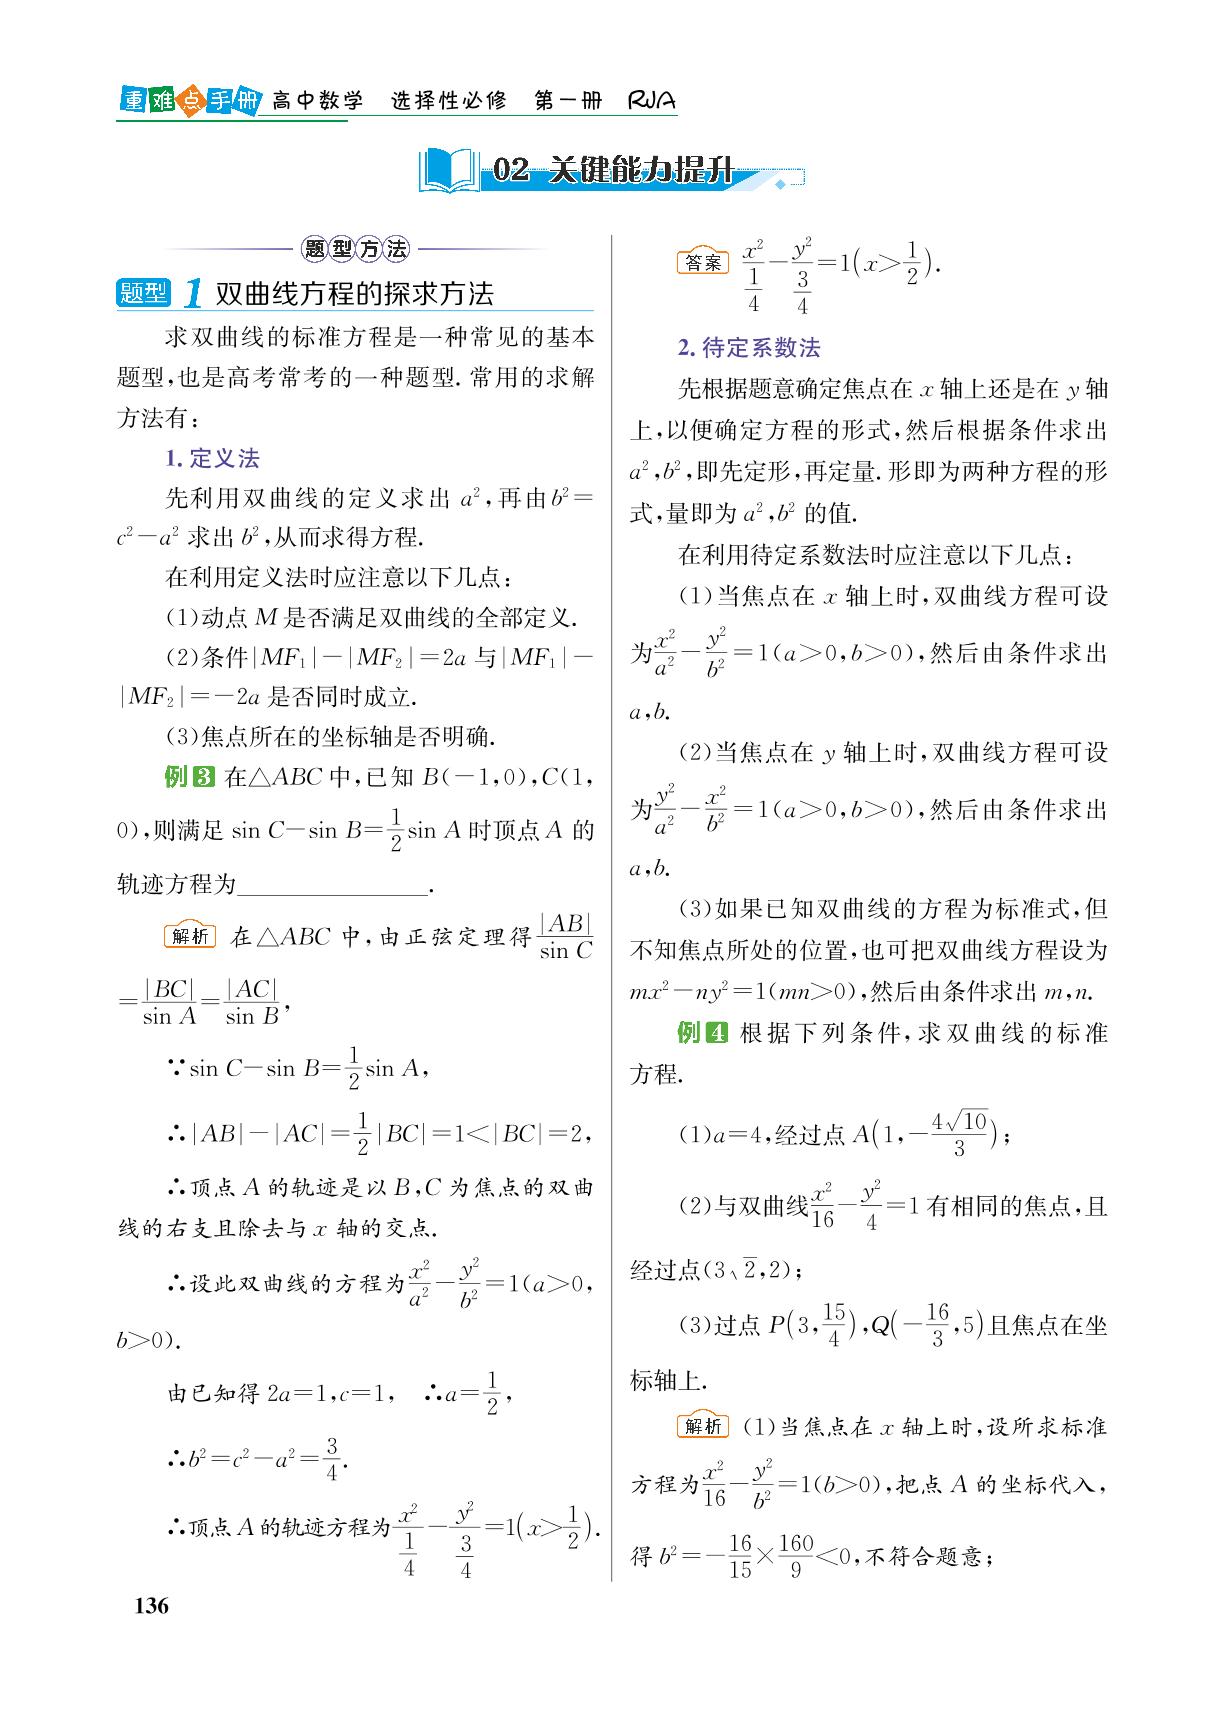 重难点手册 高中数学 选择性必修 第一册 RJA
02 关键能力提升
题型方法
题型 1 双曲线方程的探求方法
求双曲线的标准方程是一种常见的基本
题型,也是高考常考的一种题型. 常用的求解
方法有:
1. 定义法
先利用双曲线的定义求出 a²,再由b²=
c²-a² 求出 b²,从而求得方程.
在利用定义法时应注意以下几点:
(1)动点 M 是否满足双曲线的全部定义.
(2)条件|MF₁|-|MF₂|=2a 与|MF₁|-
|MF₂|=-2a 是否同时成立.
(3)焦点所在的坐标轴是否明确.
例3 在△ABC 中,已知 B(-1,0),C(1,
0),则满足 sin C-sin B=1/2 sin A 时顶点 A 的
轨迹方程为________________.
解析 在△ABC 中,由正弦定理得|AB|/sin C
=|BC|/sin A=|AC|/sin B,
∵sin C-sin B=1/2 sin A,
∴|AB|-|AC|=1/2|BC|=1<|BC|=2,
∴顶点 A 的轨迹是以 B,C 为焦点的双曲
线的右支且除去与 x 轴的交点.
∴设此双曲线的方程为x²/a²-y²/b²=1(a>0,
b>0).
由已知得 2a=1,c=1, ∴a=1/2,
∴b²=c²-a²=3/4.
∴顶点 A 的轨迹方程为x²/(1/4)-y²/(3/4)=1(x>1/2).
136
答案 x²/(1/4)-y²/(3/4)=1(x>1/2).
2. 待定系数法
先根据题意确定焦点在 x 轴上还是在 y 轴
上,以便确定方程的形式,然后根据条件求出
a²,b²,即先定形,再定量. 形即为两种方程的形
式,量即为 a²,b² 的值.
在利用待定系数法时应注意以下几点:
(1)当焦点在 x 轴上时,双曲线方程可设
为x²/a²-y²/b²=1(a>0,b>0),然后由条件求出
a,b.
(2)当焦点在 y 轴上时,双曲线方程可设
为y²/a²-x²/b²=1(a>0,b>0),然后由条件求出
a,b.
(3)如果已知双曲线的方程为标准式,但
不知焦点所处的位置,也可把双曲线方程设为
mx²-ny²=1(mn>0),然后由条件求出 m,n.
例4 根据下列条件,求双曲线的标准
方程.
(1)a=4,经过点 A(1,-4√10/3);
(2)与双曲线x²/16-y²/4=1 有相同的焦点,且
经过点(3√2,2);
(3)过点 P(3,15/4),Q(-16/3,5)且焦点在坐
标轴上.
解析 (1)当焦点在 x 轴上时,设所求标准
方程为x²/16-y²/b²=1(b>0),把点 A 的坐标代入,
得 b²=-16/15×160/9<0,不符合题意;